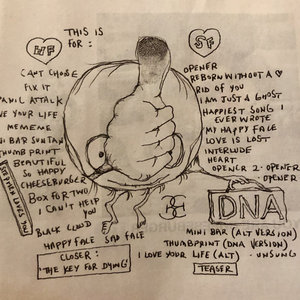 THIS IS
FOR :
HF
SF
CAN'T CHOOSE
FIX IT
PANIC ATTACK
LOVE YOUR LIFE
MEMEME
MINI BAR SUNTAN
THUMBPRINT
BEAUTIFUL
SO HAPPY
CHEESEBURGER
BOX FOR TWO
I CAN'T HELP
YOU
BLACK CLOUD
HAPPY FACE SAD FACE
CLOSER :
'THE KEY FOR DYING'
LOVES YOU
OPENER
REBORN WITHOUT A ♥
RID OF YOU
I AM JUST A GHOST
HAPPIEST SONG I
EVER WROTE
MY HAPPY FACE
LOVE IS LOST
INTERLUDE
HEART
OPENER 2 - OPENER
- OPENER
DNA
MINI BAR (ALT VERSION)
THUMBPRINT (DNA VERSION)
I LOVE YOUR LIFE (ALT) - UNSUNG
TEASER